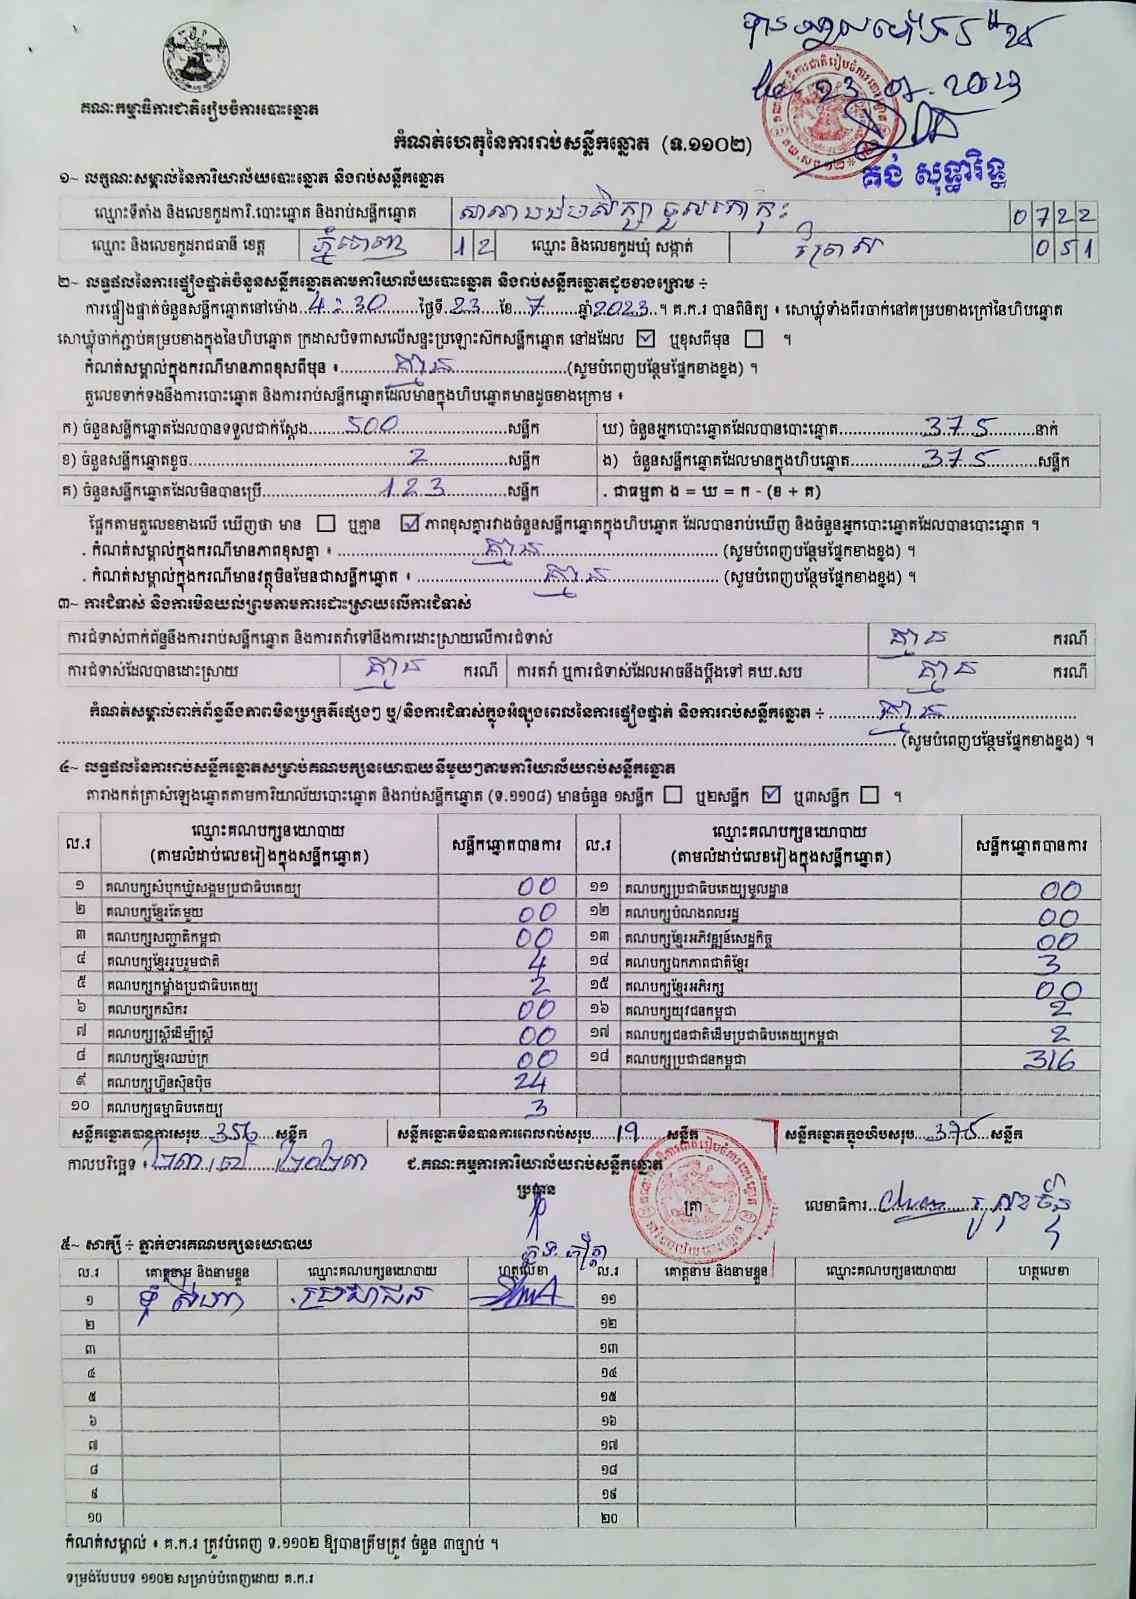 បានឃើញ
23 . 07 . 2023
គណៈកម្មាធិការជាតិរៀបចំការបោះឆ្នោត
កំណត់ហេតុនៃការរាប់សន្លឹកឆ្នោត (ទ.១១០២)
គង់ សុទ្ធារិទ្ធ
១~ លក្ខណៈសម្គាល់នៃការិយាល័យបោះឆ្នោត និងរាប់សន្លឹកឆ្នោត
ឈ្មោះទីតាំង និងលេខកូដការិ.បោះឆ្នោត និងរាប់សន្លឹកឆ្នោត 0 7 2 2
ឈ្មោះ និងលេខកូដរាជធានី ខេត្ត ភ្នំពេញ 1 2 ឈ្មោះ និងលេខកូដឃុំ សង្កាត់ 0 5 1
២~ លទ្ធផលនៃការផ្ទៀងផ្ទាត់ចំនួនសន្លឹកឆ្នោតតាមការិយាល័យបោះឆ្នោត និងរាប់សន្លឹកឆ្នោតដូចខាងក្រោម ៖
ការផ្ទៀងផ្ទាត់ចំនួនសន្លឹកឆ្នោតនៅម៉ោង 4:30 ថ្ងៃទី 23 ខែ 7 ឆ្នាំ 2023 ។ គ.ក.រ បានពិនិត្យ ៖ សោឃ្លុំទាំងពីរចាក់នៅគម្របខាងក្រៅនៃហិបឆ្នោត
សោឃ្លុំចាក់ភ្ជាប់គម្របខាងក្នុងនៃហិបឆ្នោត ក្រដាសបិទពាសលើសន្ទះប្រឡោះស៊កសន្លឹកឆ្នោត នៅដដែល ☑ ឬខុសពីមុន ☐ ។
កំណត់សម្គាល់ក្នុងករណីមានភាពខុសពីមុន ៖ គ្មាន (សូមបំពេញបន្ថែមផ្នែកខាងខ្នង) ។
តួលេខទាក់ទងនឹងការបោះឆ្នោត និងការរាប់សន្លឹកឆ្នោតដែលមានក្នុងហិបឆ្នោតមានដូចខាងក្រោម ៖
ក) ចំនួនសន្លឹកឆ្នោតដែលបានទទួលជាក់ស្តែង 500 សន្លឹក ឃ) ចំនួនអ្នកបោះឆ្នោតដែលបានបោះឆ្នោត 375 នាក់
ខ) ចំនួនសន្លឹកឆ្នោតខូច 2 សន្លឹក ង) ចំនួនសន្លឹកឆ្នោតដែលមានក្នុងហិបឆ្នោត 375 សន្លឹក
គ) ចំនួនសន្លឹកឆ្នោតដែលមិនបានប្រើ 123 សន្លឹក . ជាធម្មតា ង = ឃ = ក - (ខ + គ)
ផ្អែកតាមតួលេខខាងលើ ឃើញថា មាន ☐ ឬគ្មាន ☑ ភាពខុសគ្នារវាងចំនួនសន្លឹកឆ្នោតក្នុងហិបឆ្នោត ដែលបានរាប់ឃើញ និងចំនួនអ្នកបោះឆ្នោតដែលបានបោះឆ្នោត ។
. កំណត់សម្គាល់ក្នុងករណីមានភាពខុសគ្នា ៖ គ្មាន (សូមបំពេញបន្ថែមផ្នែកខាងខ្នង) ។
. កំណត់សម្គាល់ក្នុងករណីមានវត្ថុមិនមែនជាសន្លឹកឆ្នោត ៖ គ្មាន (សូមបំពេញបន្ថែមផ្នែកខាងខ្នង) ។
៣~ ការជំទាស់ និងការមិនយល់ព្រមតាមការដោះស្រាយលើការជំទាស់
ការជំទាស់ពាក់ព័ន្ធនឹងការរាប់សន្លឹកឆ្នោត និងការតវ៉ាទៅនឹងការដោះស្រាយលើការជំទាស់ គ្មាន ករណី
ការជំទាស់ដែលបានដោះស្រាយ គ្មាន ករណី ការតវ៉ា ឬការជំទាស់ដែលអាចនឹងប្តឹងទៅ គឃ.សប គ្មាន ករណី
កំណត់សម្គាល់ពាក់ព័ន្ធនឹងភាពមិនប្រក្រតីផ្សេងៗ ឬ/និងការជំទាស់ក្នុងអំឡុងពេលនៃការផ្ទៀងផ្ទាត់ និងការរាប់សន្លឹកឆ្នោត ៖ គ្មាន
(សូមបំពេញបន្ថែមផ្នែកខាងខ្នង) ។
៤~ លទ្ធផលនៃការរាប់សន្លឹកឆ្នោតសម្រាប់គណបក្សនយោបាយនីមួយៗតាមការិយាល័យរាប់សន្លឹកឆ្នោត
តារាងកត់ត្រាសំឡេងឆ្នោតតាមការិយាល័យបោះឆ្នោត និងរាប់សន្លឹកឆ្នោត (ទ.១១០៨) មានចំនួន ១សន្លឹក ☐ ឬ២សន្លឹក ☑ ឬ៣សន្លឹក ☐ ។
ល.រ ឈ្មោះគណបក្សនយោបាយ (តាមលំដាប់លេខរៀងក្នុងសន្លឹកឆ្នោត) សន្លឹកឆ្នោតបានការ ល.រ ឈ្មោះគណបក្សនយោបាយ (តាមលំដាប់លេខរៀងក្នុងសន្លឹកឆ្នោត) សន្លឹកឆ្នោតបានការ
១ គណបក្សសំបុកឃ្មុំសង្គមប្រជាធិបតេយ្យ 00 ១១ គណបក្សប្រជាធិបតេយ្យមូលដ្ឋាន 00
២ គណបក្សខ្មែរតែមួយ 00 ១២ គណបក្សបំណងពលរដ្ឋ 00
៣ គណបក្សសញ្ជាតិកម្ពុជា 00 ១៣ គណបក្សខ្មែរអភិវឌ្ឍន៍សេដ្ឋកិច្ច 00
៤ គណបក្សខ្មែររួបរួមជាតិ 4 ១៤ គណបក្សឯកភាពជាតិខ្មែរ 3
៥ គណបក្សកម្លាំងប្រជាធិបតេយ្យ 2 ១៥ គណបក្សខ្មែរអភិរក្ស 00
៦ គណបក្សកសិករ 00 ១៦ គណបក្សយុវជនកម្ពុជា 2
៧ គណបក្សស្ត្រីដើម្បីស្ត្រី 00 ១៧ គណបក្សជនជាតិដើមប្រជាធិបតេយ្យកម្ពុជា 2
៨ គណបក្សខ្មែរឈប់ក្រ 00 ១៨ គណបក្សប្រជាជនកម្ពុជា 316
៩ គណបក្សហ៊្វុនស៊ិនប៉ិច 24
១០ គណបក្សធម្មាធិបតេយ្យ 3
សន្លឹកឆ្នោតបានការសរុប 356 សន្លឹក សន្លឹកឆ្នោតមិនបានការពេលរាប់សរុប 19 សន្លឹក សន្លឹកឆ្នោតក្នុងហិបសរុប 375 សន្លឹក
កាលបរិច្ឆេទ ៖ ២៣/៧/២០២៣ ជ.គណៈកម្មការការិយាល័យរាប់សន្លឹកឆ្នោត
ប្រធាន ត្រា លេខាធិការ
៥~ សាក្សី ៖ ភ្នាក់ងារគណបក្សនយោបាយ
ល.រ គោត្តនាម និងនាមខ្លួន ឈ្មោះគណបក្សនយោបាយ ហត្ថលេខា ល.រ គោត្តនាម និងនាមខ្លួន ឈ្មោះគណបក្សនយោបាយ ហត្ថលេខា
១ ប្រជាជន ១១
២ ១២
៣ ១៣
៤ ១៤
៥ ១៥
៦ ១៦
៧ ១៧
៨ ១៨
៩ ១៩
១០ ២០
កំណត់សម្គាល់ ៖ គ.ក.រ ត្រូវបំពេញ ទ.១១០២ ឱ្យបានត្រឹមត្រូវ ចំនួន ៣ច្បាប់ ។
ទម្រង់បែបបទ ១១០២ សម្រាប់បំពេញដោយ គ.ក.រ